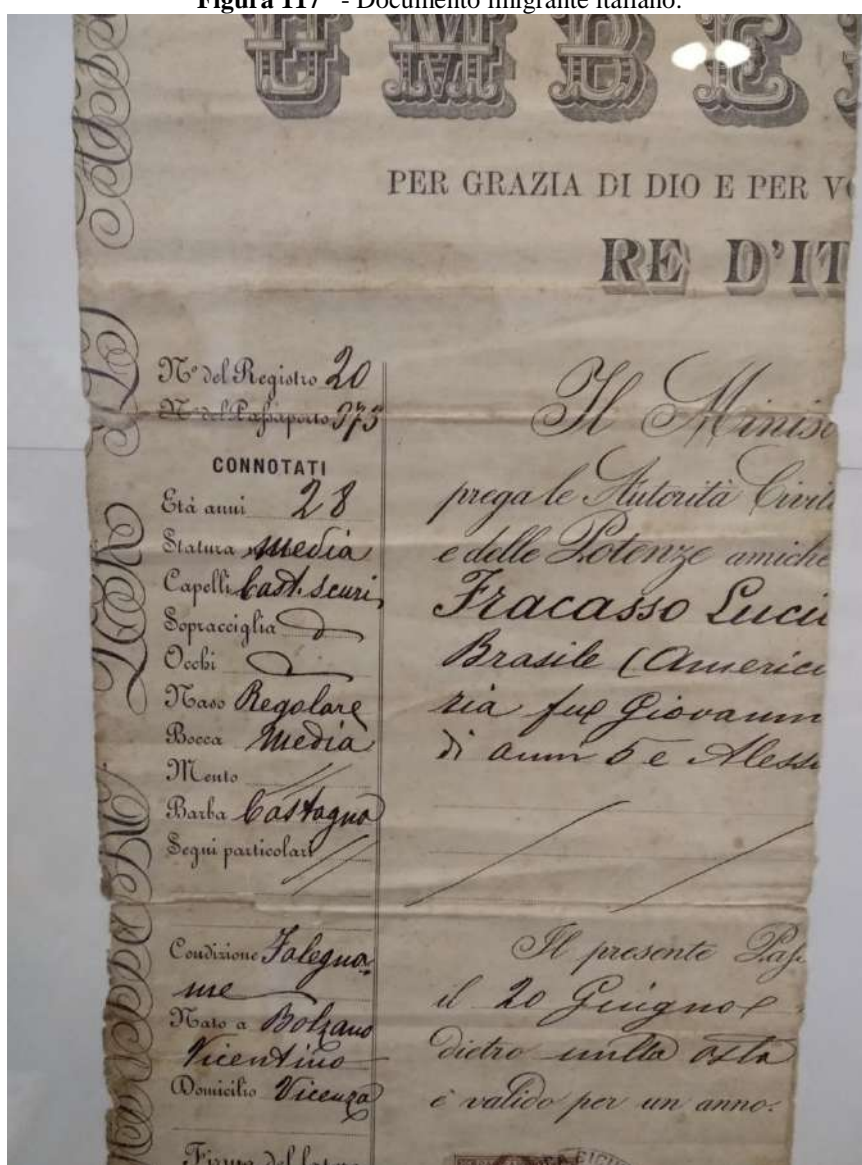 Figura 117 - Documento Imigrante italiano.
UMBE
PER GRAZIA DI DIO E PER V
RE D'IT
Nº del Registro 20
Nº del Passaporto 373
CONNOTATI
Età anni 28
Statura media
Capelli Cast. scuri
Sopracciglia
Occhi
Naso Regolare
Bocca Media
Mento
Barba Castagna
Segni particolari
Condizione Falegna
me
Nato a Bolzano
Vicentino
Domicilio Vicenza
Firma del
Il Minis
prega le Autorità Civili
e delle Potenze amiche
Fracasso Luci
Brasile (Americ
ria fu Giovann
di anni 5 e Aless
Il presente Pass
il 20 Giugno
dietro nulla osta
è valido per un anno.